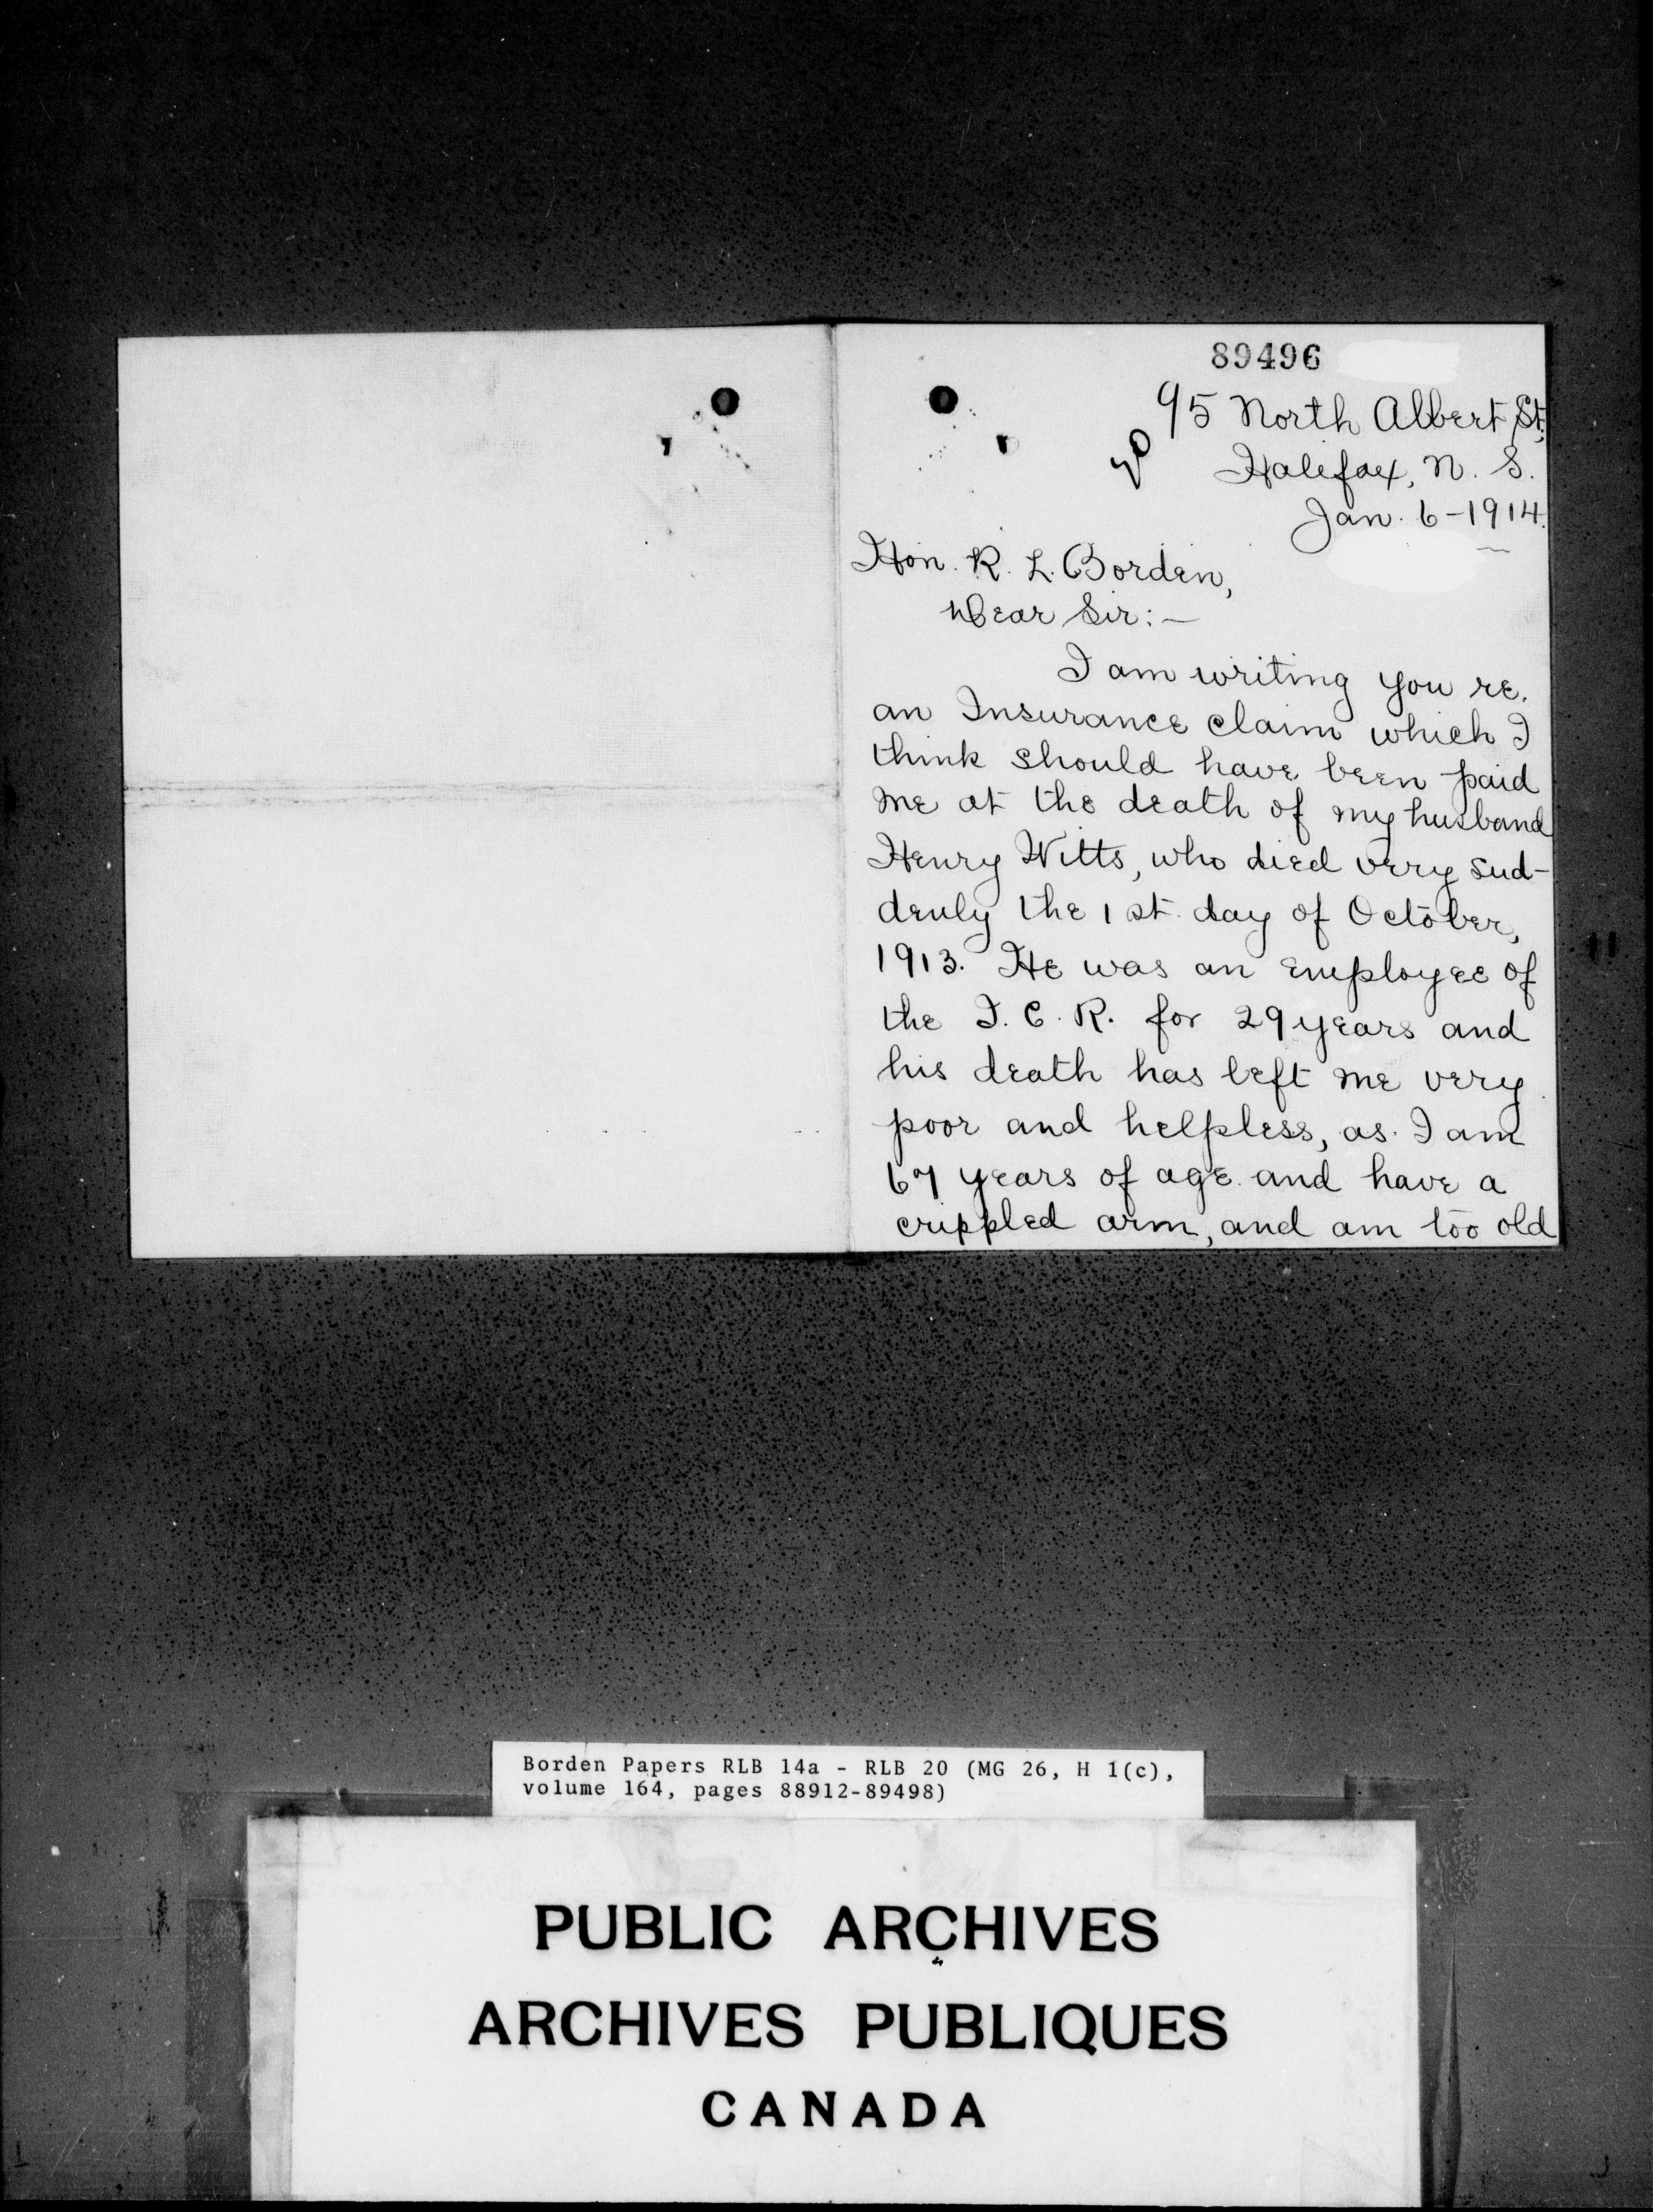 89496
95 North Albert St.
Halifax, N. S.
Jan. 6-1914.
Hon. R. L. Borden,
Dear Sir:—
I am writing you re.
an Insurance claim which I
think should have been paid
me at the death of my husband
Henry Witts, who died very sud-
denly the 1st. day of October,
1913. He was an employee of
the I. C. R. for 29 years and
his death has left me very
poor and helpless, as I am
67 years of age and have a
crippled arm, and am too old
Borden Papers RLB 14a - RLB 20 (MG 26, H 1(c),
volume 164, pages 88912-89498)
PUBLIC ARCHIVES
ARCHIVES PUBLIQUES
CANADA